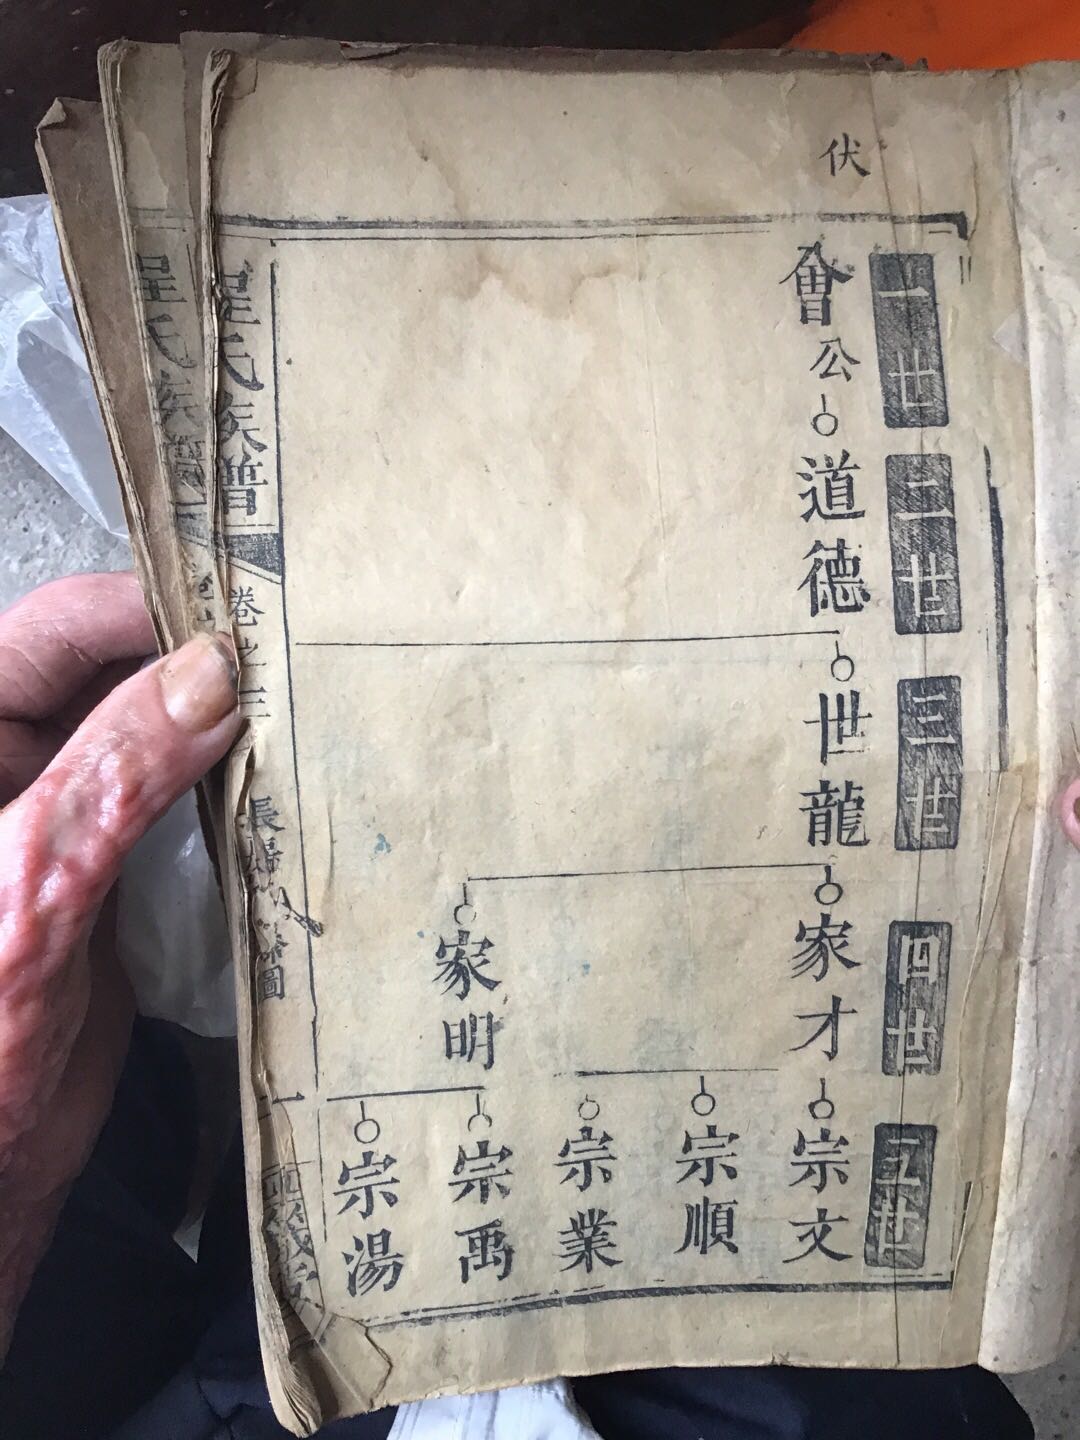 伏
一世
二世
三世
四世
五世
會公
道德
世龍
家才
家明
宗文
宗順
宗業
宗禹
宗湯
程氏族譜
卷之三
長房
圖
一
程氏族譜
卷